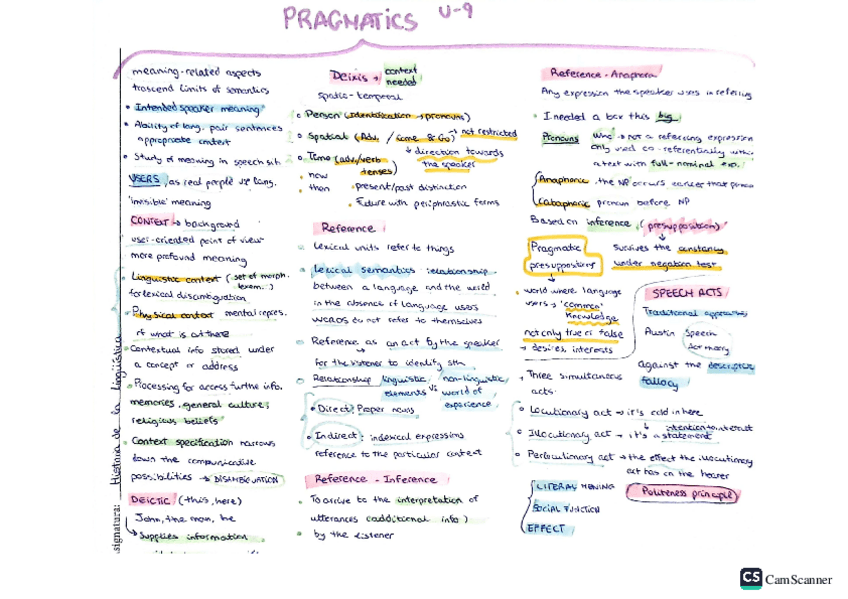 PRAGMATICS U-9
meaning-related aspects
trascend limits of semantics
• Intended speaker meaning
• Ability of lang. pair sentences
appropriate context
• Study of meaning in speech sit.
USERS, as real people use lang.
'invisible' meaning
CONTEXT → background
user-oriented point of view
more profound meaning
• Linguistic context (set of morph.
lexem.)
for lexical disambiguation
• Physical context mental repres.
of what is out there
• Contextual info stored under
a concept or address
• Processing for access further info.
memories, general culture,
religious beliefs
• Context specification narrows
down the communicative
possibilities → DISAMBIGUATION
DEICTIC (this, here)
John, the man, he
↳ Supplies information
signatura: Historia de la lingüística
Deixis → context
needed
spatio-temporal
• Person (identification → pronouns)
• Spatial (Adv. / Come & Go) → not restricted
↓ direction towards
the speaker
• Time (adv/verb
tenses)
• now
• then
• present/past distinction
• Future with periphrastic forms
Reference
Lexical units refer to things
Lexical semantics: relationship
between a language and the world
in the absence of language users
WORDS do not refer to themselves
Reference as an act by the speaker
for the listener to identify sth
Relationship linguistic elements vs non-linguistic
world of
experience
• Direct: Proper nouns
• Indirect: indexical expressions
reference to the particular context
Reference - Inference
• To arrive to the interpretation of
utterances (additional info)
• by the listener
Reference - Anaphora
Any expression the speaker uses in referring
• I needed a box this big
Pronouns
not a referring expression
only used co-referentially within
a text with full-nominal exp.
Anaphoric, the NP occurs earlier that pronoun
Cataphoric pronoun before NP
Based on inference, (presupposition)
Pragmatic
presuppositions
Survives the constancy
under negation test
→ world where language
users → 'common'
knowledge
not only true or false
→ desires, interests
SPEECH ACTS
Traditional approaches
Austin Speech
Act theory
against the descriptive
fallacy
→ Three simultaneous
acts.
• Locutionary act → it's cold in here
↓ intention to interact
• Illocutionary act → it's a statement
• Perlocutionary act → the effect the illocutionary
act has on the hearer
LITERAL MEANING
SOCIAL FUNCTION
EFFECT
Politeness principle
CS CamScanner